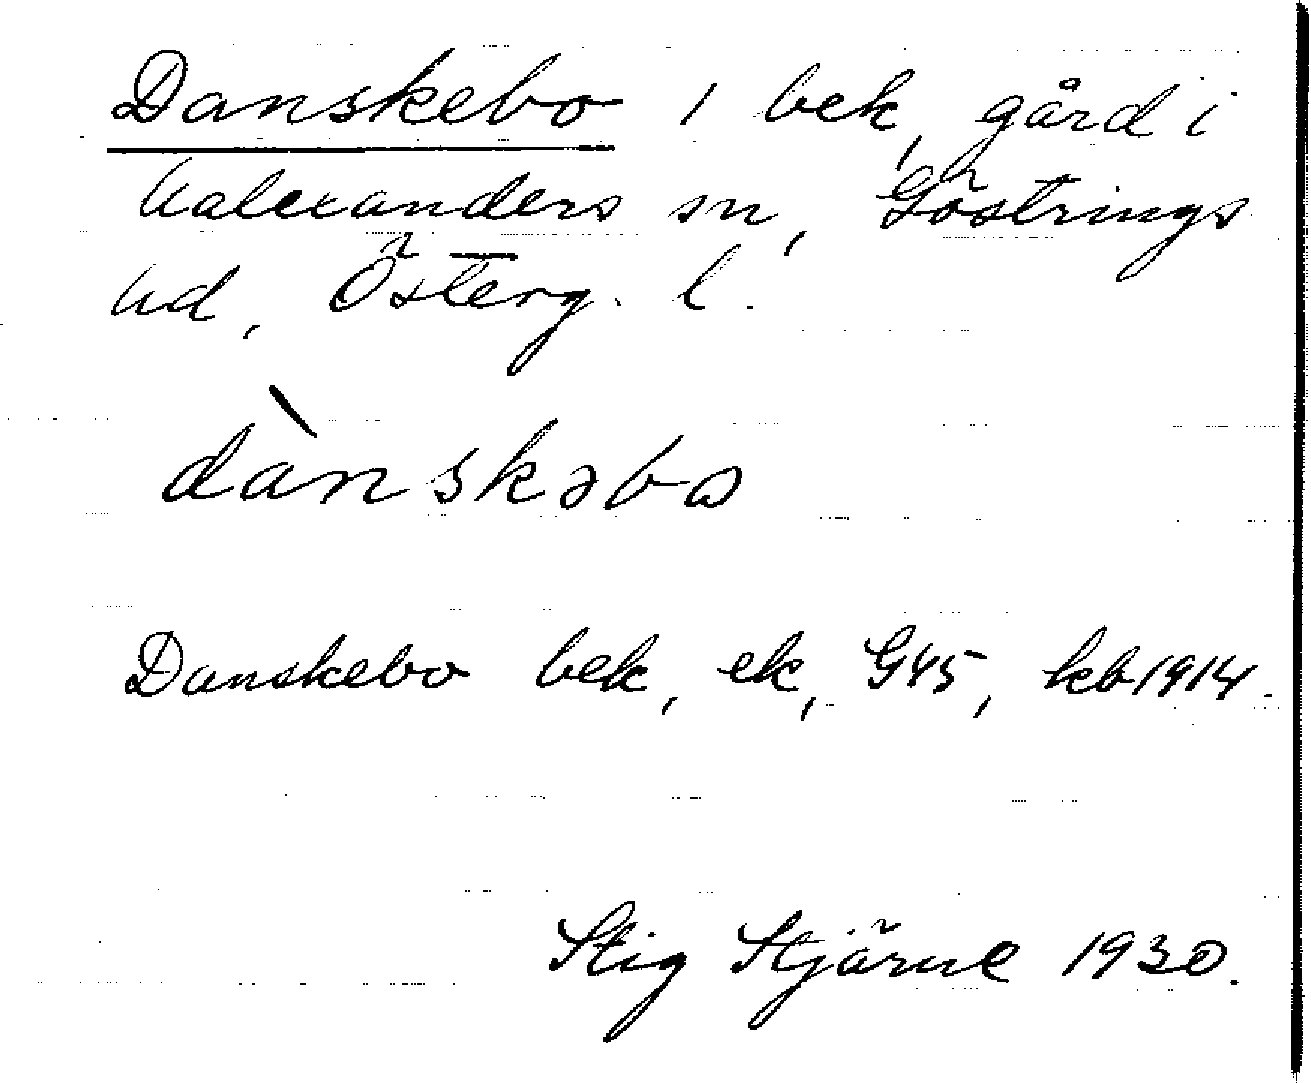 Danskebo 1 bek, gård i
Walexanders sn, Göstrings
hd, Österg. l.
dànskəbo
Danskebo bek, ek, G45, kb1914.
Stig Stjärne 1930.